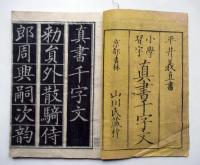 平井義直書
小學習字
真書千字文
京都書林
山川氏
真書千字文
勅員外散騎侍
郎周興嗣次韵